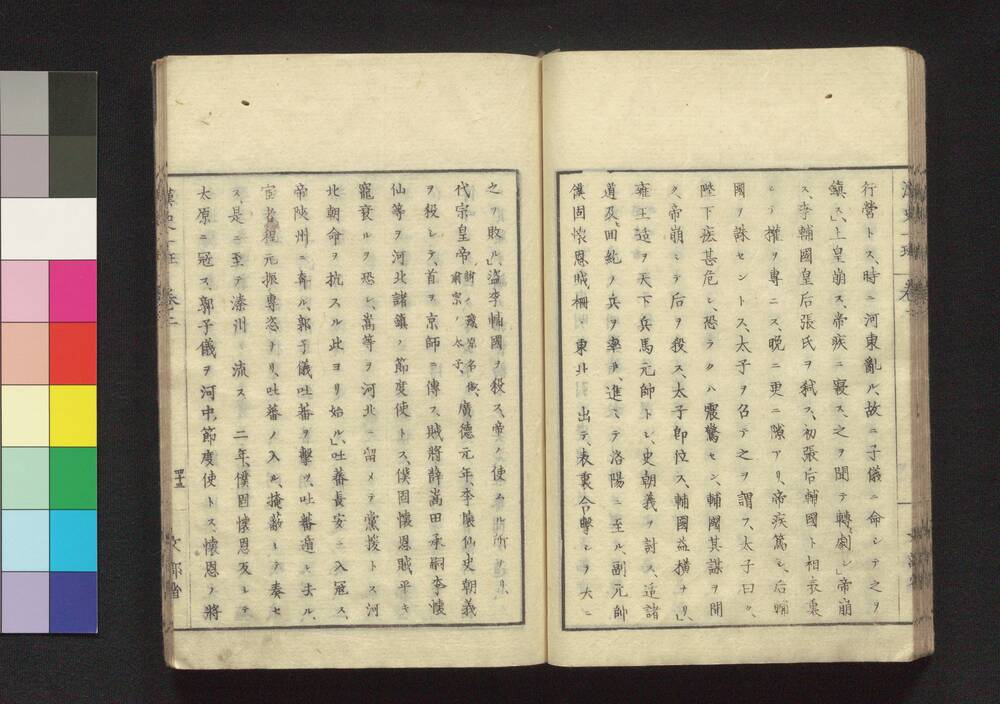 行営トス、時ニ河東亂ル、故ニ子儀ニ命シテ之ヲ
鎮ス」上皇崩ス、帝疾ニ寝ス、之ヲ聞テ轉劇シ」帝崩
ス、李輔國皇后張氏ヲ弑ス、初張后輔國ト相表裏
シテ權ヲ專ニス、晩ニ更ニ隙アリ、帝疾篤シ、后輔
國ヲ誅セントス、太子ヲ召テ之ヲ謂フ、太子曰ク、
陛下疾甚危シ、恐ラクハ震驚セン、輔國其謀ヲ聞
ク、帝崩シテ后ヲ殺ス、太子即位ス、輔國益横ナリ」
雍王适ヲ天下兵馬元帥トシ、史朝義ヲ討ス、适諸
道及回紇ノ兵ヲ率ヰ、進ミテ洛陽ニ至ル、副元帥
僕固懐恩賊柵 東北 出テ、表裏合擊シテ大ニ
之ヲ敗ル」盗李輔國ヲ殺ス、帝ノ使
代宗皇帝、諱ハ豫、原名俶、
肅宗ノ太子、
廣德元年、李懐仙史朝義
ヲ殺シテ、首ヲ京師ニ傳ス、賊將薛嵩田承嗣李懐
仙等ヲ河北諸鎮ノ節度使トス、僕固懐恩賊平キ
寵衰ルヲ恐レ、嵩等ヲ河北ニ留メテ黨援トス河
北朝命ヲ抗スル此ヨリ始ル」吐蕃長安ニ入冦ス、
帝陝州ニ奔ル、郭子儀吐蕃ヲ擊ツ、吐蕃遁レ去ル、
宦者程元振專恣ナリ、吐蕃ノ入ル、掩蔽シテ奏セ
ス、是ニ至テ溱州 流ス 二年、僕固懐恩反シテ
太原ニ冦ス、郭子儀ヲ河中節度使トス、懐恩ノ將
漢史一班 卷二
四十五
文部省